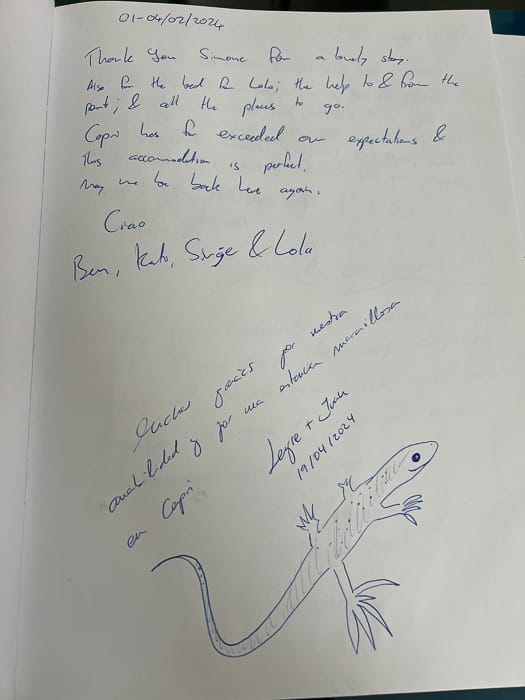 01-04/02/2024
Thank you Simone for a lovely stay.
Also for the bed for Lola; the help to & from the
port; & all the places to go.
Capri has far exceeded our expectations &
this accommodation is perfect.
May we be back here again.
Ciao
Ben, Kato, & Lola
Muchas gracias por vuestra
amabilidad y por una estancia maravillosa
en Capri
+ Juan
19/04/2024